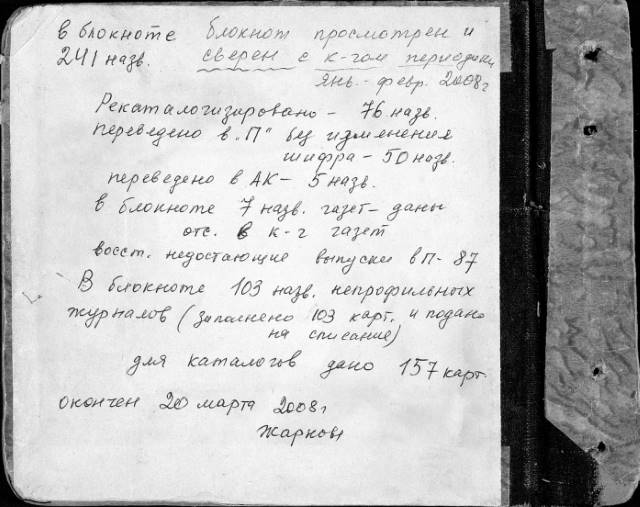 в блокноте
241 назв.
блокнот просмотрен и
сверен с к-гом периодики
янв.-февр. 2008г
Рекаталогизировано - 76 назв.
переведено в "П" без изменения
шифра - 50 назв.
переведено в АК - 5 назв.
в блокноте 7 назв. газет - даны
отс. в к-г газет
восст. недостающие выпуски в П - 87
В блокноте 103 назв. непрофильных
журналов (заполнено 103 карт. и подано
на списание)
для каталогов дано 157 карт.
окончен 20 марта 2008г